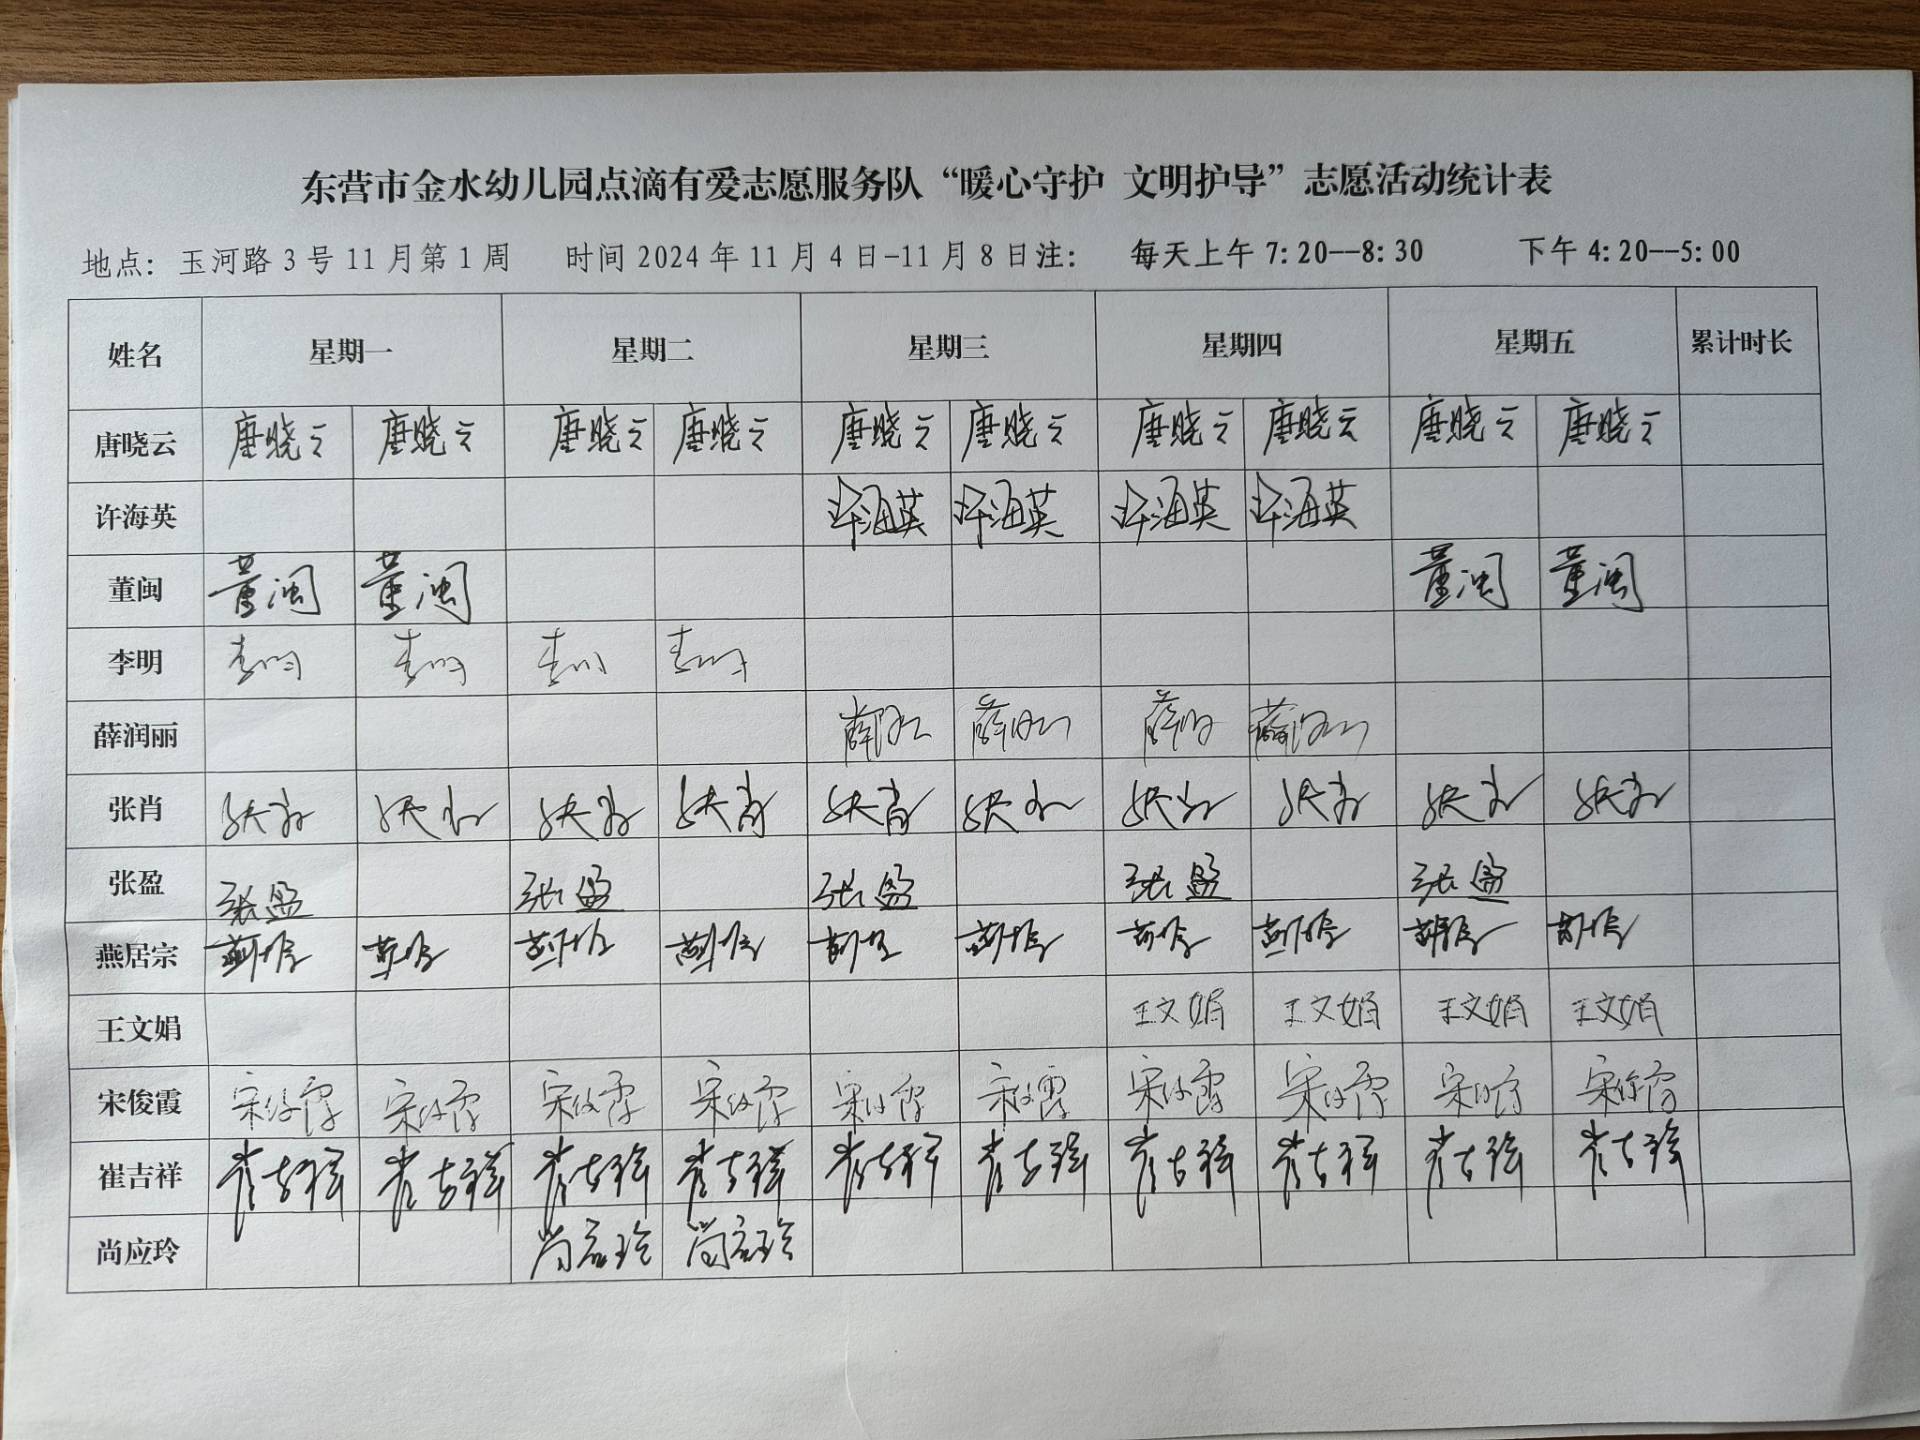 东营市金水幼儿园点滴有爱志愿服务队“暖心守护 文明护导”志愿活动统计表
地点：玉河路3号11月第1周 时间2024年11月4日-11月8日注： 每天上午7:20--8:30 下午4:20--5:00
姓名 星期一 星期二 星期三 星期四 星期五 累计时长
唐晓云 唐晓云 唐晓云 唐晓云 唐晓云 唐晓云 唐晓云 唐晓云 唐晓云 唐晓云 唐晓云
许海英 许海英 许海英 许海英 许海英
董闽 董闽 董闽 董闽 董闽
李明 李明 李明 李明 李明
薛润丽 薛润丽 薛润丽 薛润 薛润丽
张肖 张肖 张肖 张肖 张肖 张肖 张肖 张肖 张肖 张肖 张肖
张盈 张盈 张盈 张盈 张盈 张盈
燕居宗
王文娟 王文娟 王文娟 王文娟 王文娟
宋俊霞 宋俊霞 宋俊霞 宋俊霞 宋俊霞 宋俊霞 宋俊霞 宋俊霞 宋俊霞 宋俊霞 宋俊霞
崔吉祥 崔吉祥 崔吉祥 崔吉祥 崔吉祥 崔吉祥 崔吉祥 崔吉祥 崔吉祥 崔吉祥 崔吉祥
尚应玲 尚应玲 尚应玲